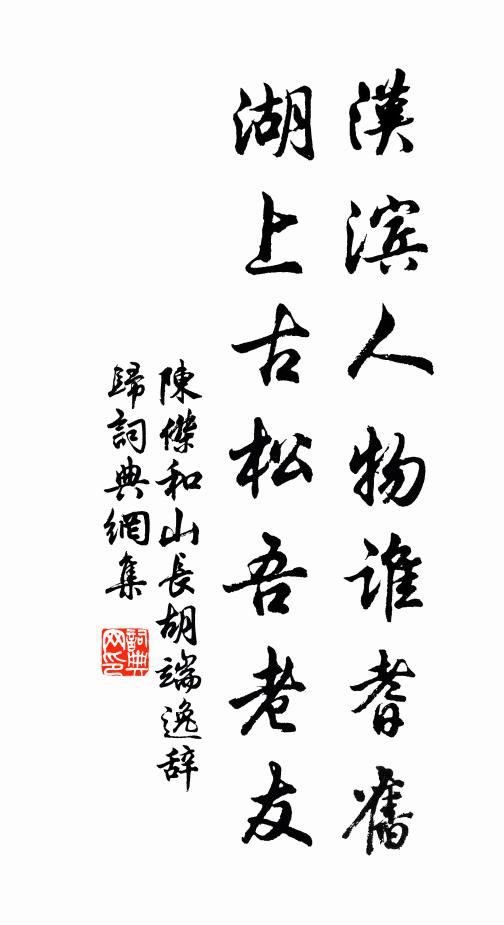 漢濱人物誰耆舊
湖上古松吾老友
陳傑和山長胡端逸辭
歸詞典網集
詞典网印